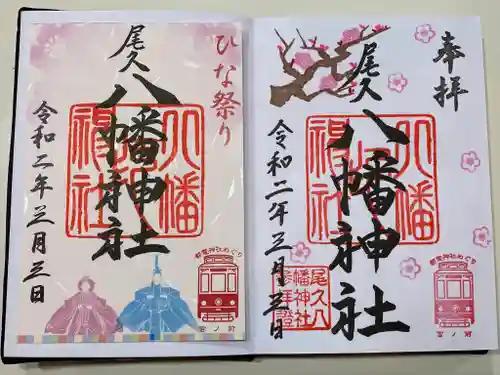 ひな祭り
尾久
八幡神社
令和二年三月三日
都電神社めぐり
宮ノ前
奉拝
尾久
八幡神社
令和二年三月三日
尾久八
幡神社
参拝證
都電神社めぐり
宮ノ前